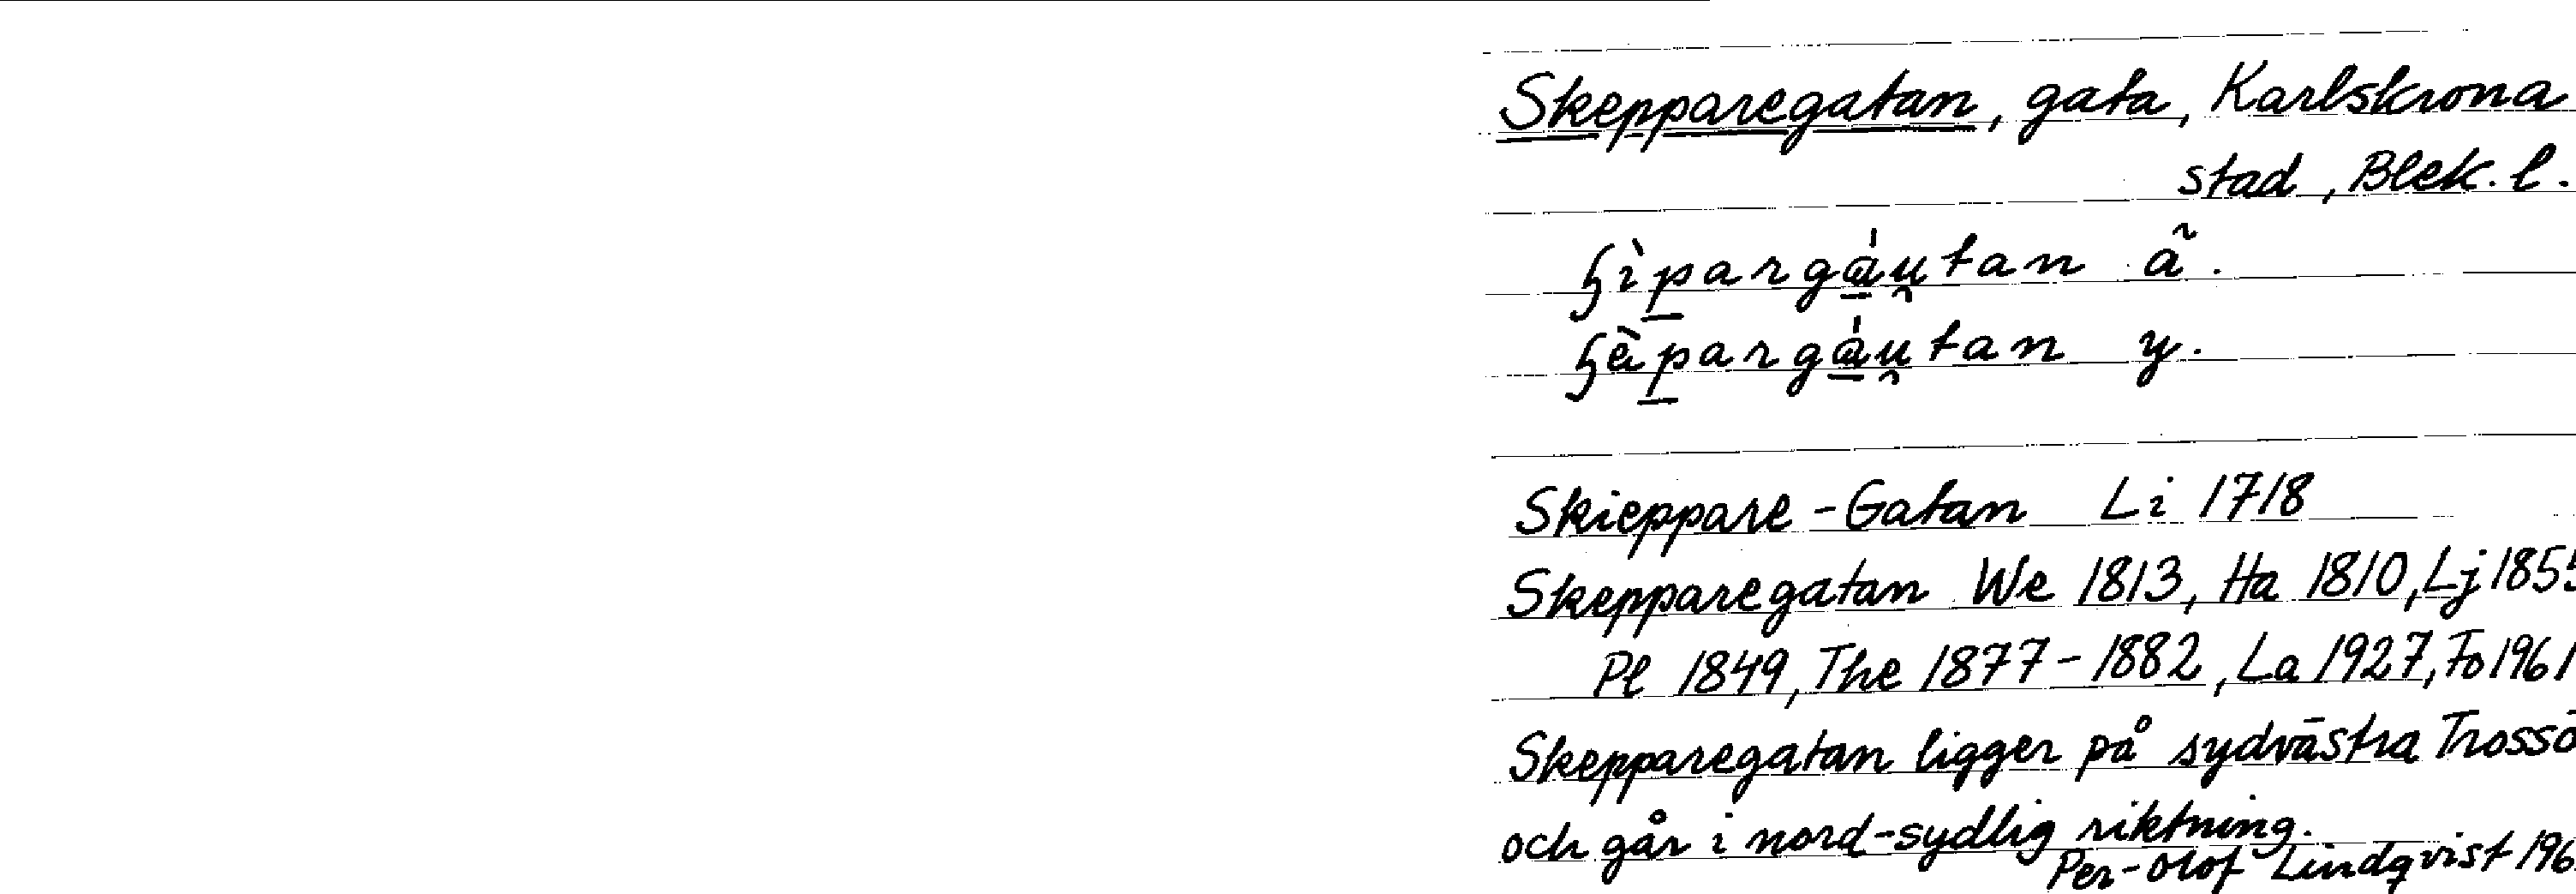 Skepparegatan, gata, Karlskrona
stad, Blek. l.
ã.
y.
Skieppare-Gatan Li 1718
Skepparegatan We 1813, Ha 1810, Lj 1855
Pl 1849, The 1877-1882, La 1927, Fo 1961
Skepparegatan ligger på sydvästra Trossö
och går i nord-sydlig riktning.
Per-Olof Lindqvist